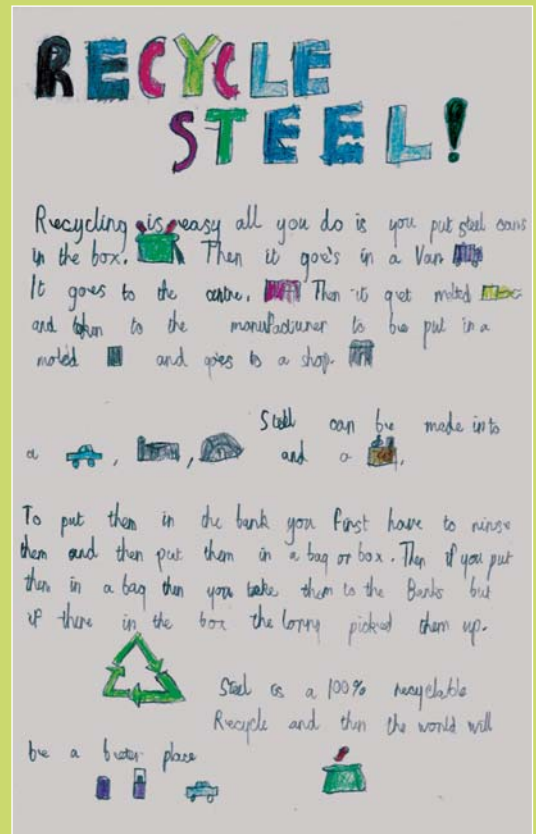 RECYCLE
STEEL!
Recycling is easy all you do is you put steel cans
in the box. Then it goe's in a Van
It goes to the centre. Then it get melted
and taken to the manufactiurer to be put in a
moled and goes to a shop.
Steel can be made into
a , , and a .
To put them in the bank you first have to rinse
them and then put them in a bag or box. Then if you put
them in a bag then you take them to the Banks but
if there in the box the lorry picked them up.
Steel is a 100% recyclable
Recycle and then the world will
be a beter place